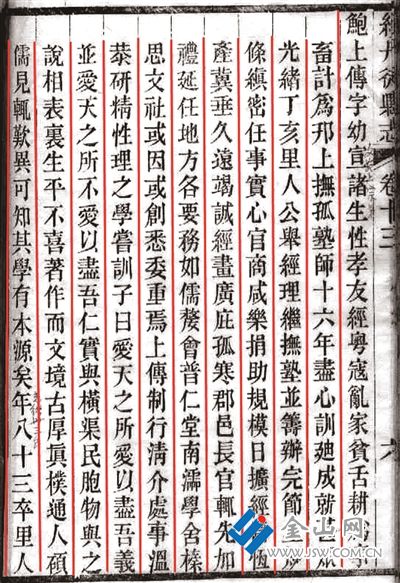 續丹徒縣志 卷十三 六
鮑上傳字幼宣諸生性孝友經粵寇亂家貧舌耕
畜計爲邦上撫孤塾師十六年盡心訓廸成就甚眾
光緒丁亥里人公舉經理繼撫塾並籌辦完節
條縝密任事實心官商咸樂捐助規模日擴經恆
產冀垂久遠竭誠經畫廣庇孤寒郡邑長官輒先加
禮延任地方各要務如儒嫠會普仁堂南濡學舍榛
思文社或因或創悉委重焉上傳制行清介處事溫
恭研精性理之學嘗訓子曰愛天之所愛以盡吾義
並愛天之所不愛以盡吾仁實與橫渠民胞物與之
說相表裏生平不喜著作而文境古厚眞樸通人碩
儒見輒歎異可知其學有本源矣年八十三卒里人
金山网
www.jsw.com.cn